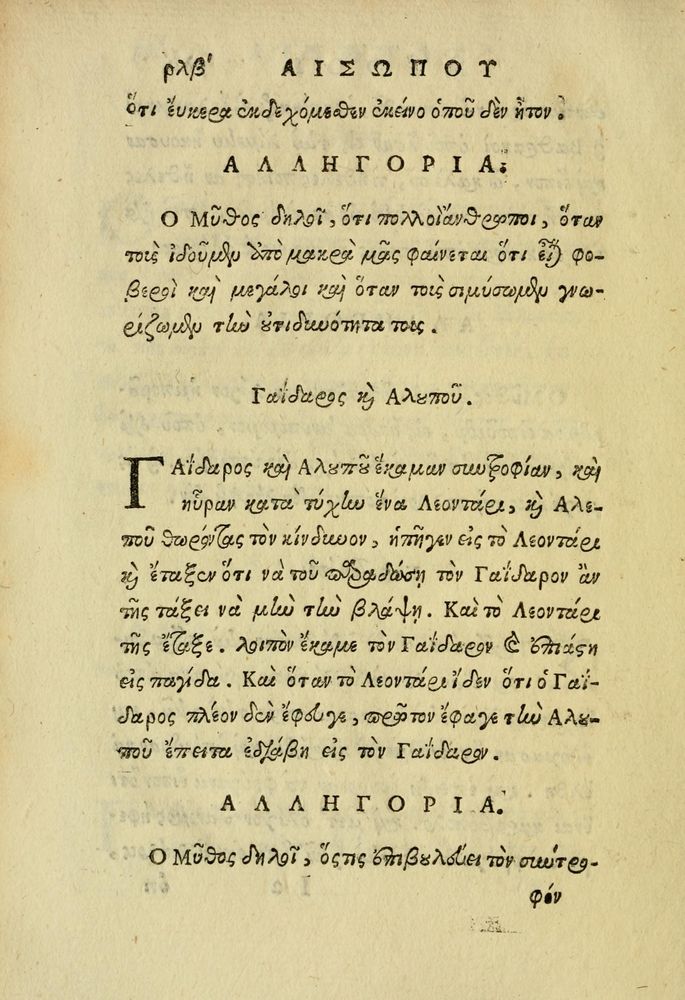 ρλβʹ ΑΙΣΩΠΟΥ
ὅτι ἔυκερα ἐκδεχόμεθεν ἐκεῖνο ὁποῦ δὲν ἦτον.
ΑΛΛΗΓΟΡΙΑ.
Ο Μῦθος δηλοῖ, ὅτι πολλοὶ ἄνθρωποι, ὅταν
τοὶς ἰδοῦμεν ἀπὸ μακρὰ μᾶς φαίνεται ὅτι εἶναι φο-
βεροὶ καὶ μεγάλοι καὶ ὅταν τοὶς σιμύσωμεν γνω-
ρίζωμεν τὴν οὐτιδινότητα τοις.
Γαΐδαρος καὶ Αλουποῦ.
ΓΑΐδαρος καὶ Αλουποῦ ἔκαμαν συντροφίαν, καὶ
ηὗραν κατὰ τύχην ἕνα Λεοντάρι, καὶ Αλε-
ποῦ θωρόντας τὸν κίνδυνον, ἡπῆγεν εἰς τὸ Λεοντάρι
καὶ ἔταξεν ὅτι νὰ τοῦ παραδώσῃ τὸν Γαΐδαρον ἂν
τῆς τάξει νὰ μὴν τὴν βλάψῃ. Καὶ τὸ Λεοντάρι
τῆς ἔταξε. λοιπὸν ἔκαμε τὸν Γαΐδαρον καὶ ἐπιάση
εἰς παγίδα. Καὶ ὅταν τὸ Λεοντάρι ἴδεν ὅτι ὁ Γαΐ-
δαρος πλέον δὲν ἔφευγε, πρῶτον ἔφαγε τὴν Αλου-
ποῦ ἔπειτα ἐδιάβη εἰς τὸν Γαΐδαρον.
ΑΛΛΗΓΟΡΙΑ.
Ο Μῦθος δηλοῖ, ὅστις ἐπιβουλεύει τὸν σύντρο-
φόν